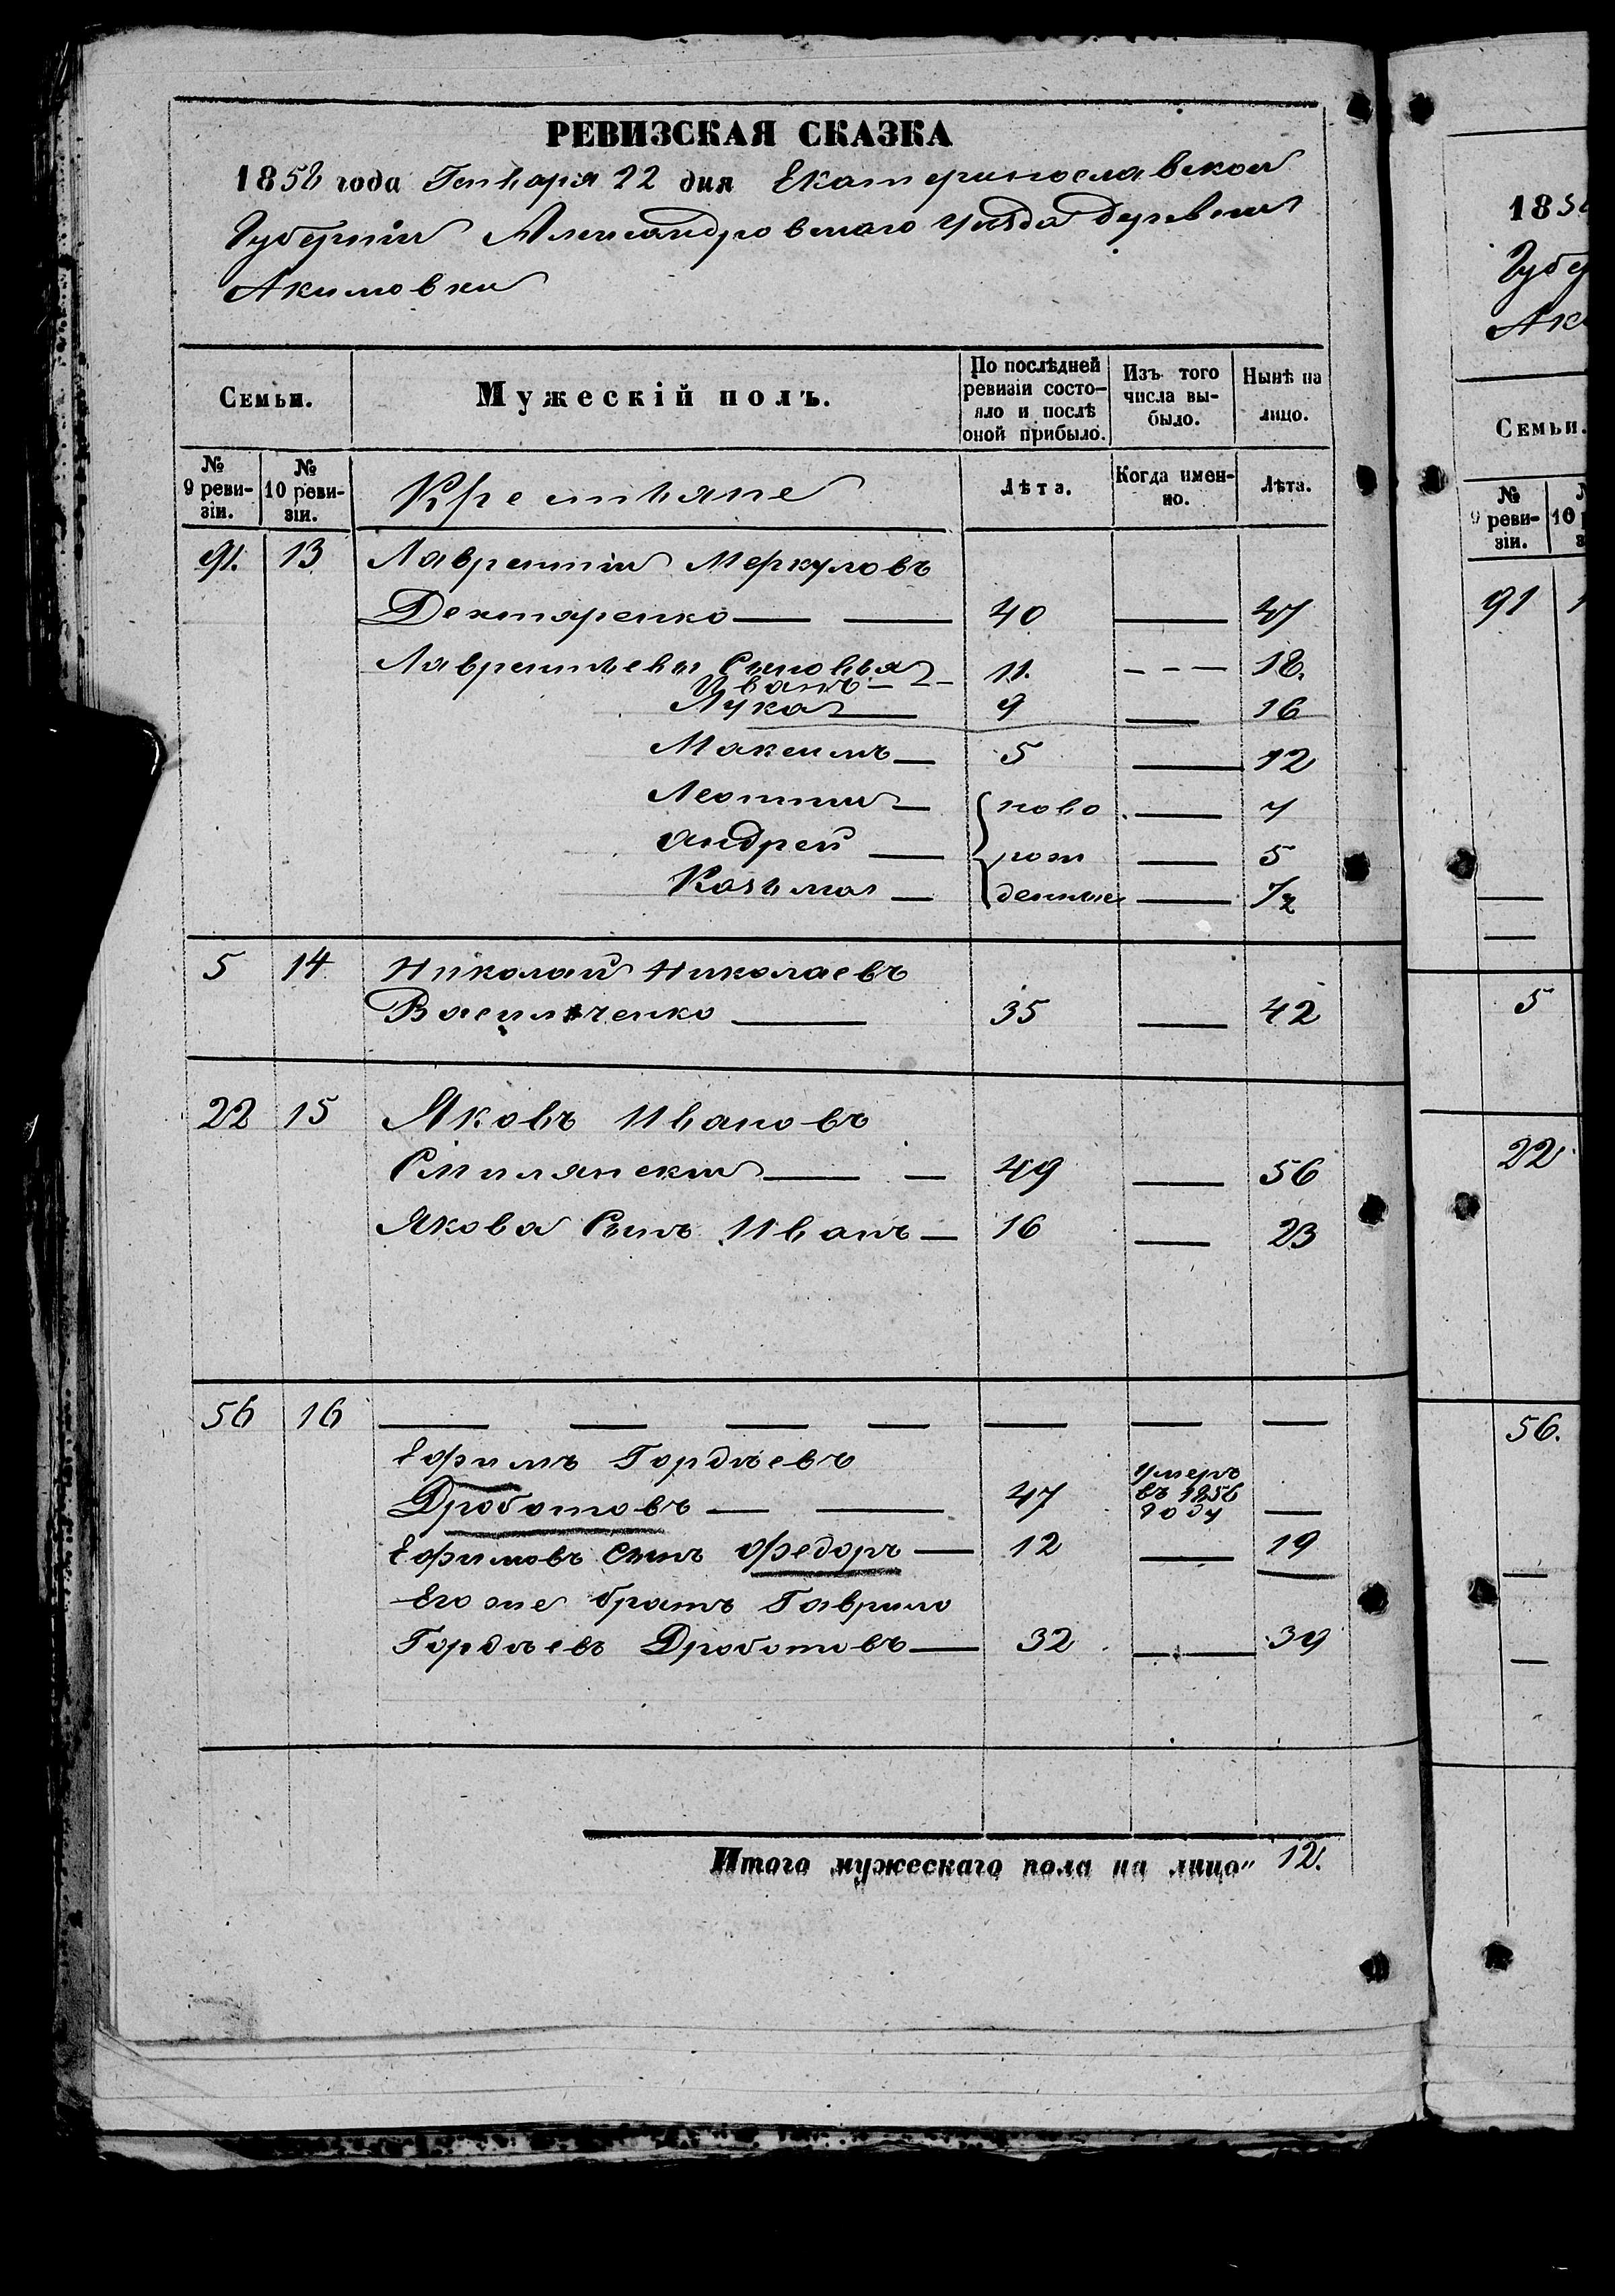 РЕВИЗСКАЯ СКАЗКА
1858 года Генваря 22 дня Екатеринославской
Губерніи Александровскаго уѣзда деревни
Акимовки
Семьи. Мужескій полъ. По послѣдней ревизіи состояло и послѣ оной прибыло. Изъ того числа выбыло. Нынѣ на лицо.
№ 9 ревизіи. № 10 ревизіи. Крестьяне Лѣта. Когда именно. Лѣта.
91. 13 Лаврентій Меркуловъ
Дехтяренко — — 40 — 47
Лаврентьевы Сыновья
Иванъ — 11. - - - 18.
Лука — 9 — 16
Максимъ — 5 — 12
Леонтий — ново — 7
Андрей — рож — 5
Козьма — денные — 1/2
5 14 Николай Николаевъ
Васильченко — 35 — 42
22 15 Яковъ Ивановъ
Смилянский — — 49 — 56
Якова Сынъ Иванъ — 16 — 23
56 16 — — — — — — —
Ефимъ Гордѣевъ
Дроботовъ — — 47 умеръ въ 1856 году —
Ефимовъ сынъ Федоръ — 12 — 19
Его же братъ Гаврило
Гордѣевъ Дроботовъ — 32 — 39
Итого мужескаго пола на лицо" 12.
185
Губер
Ак
Семьи.
№ 9 ревизіи. 10
91
5
22
56.